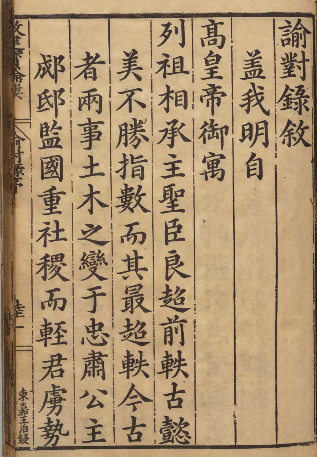 諭對錄敘
蓋我明自
髙皇帝御寓
列祖相承主聖臣良超前軼古懿
美不勝指數而其最超軼今古
者兩事土木之變于忠肅公主
郕邸監國重社稷而輊君虜勢
東嘉王治鋟